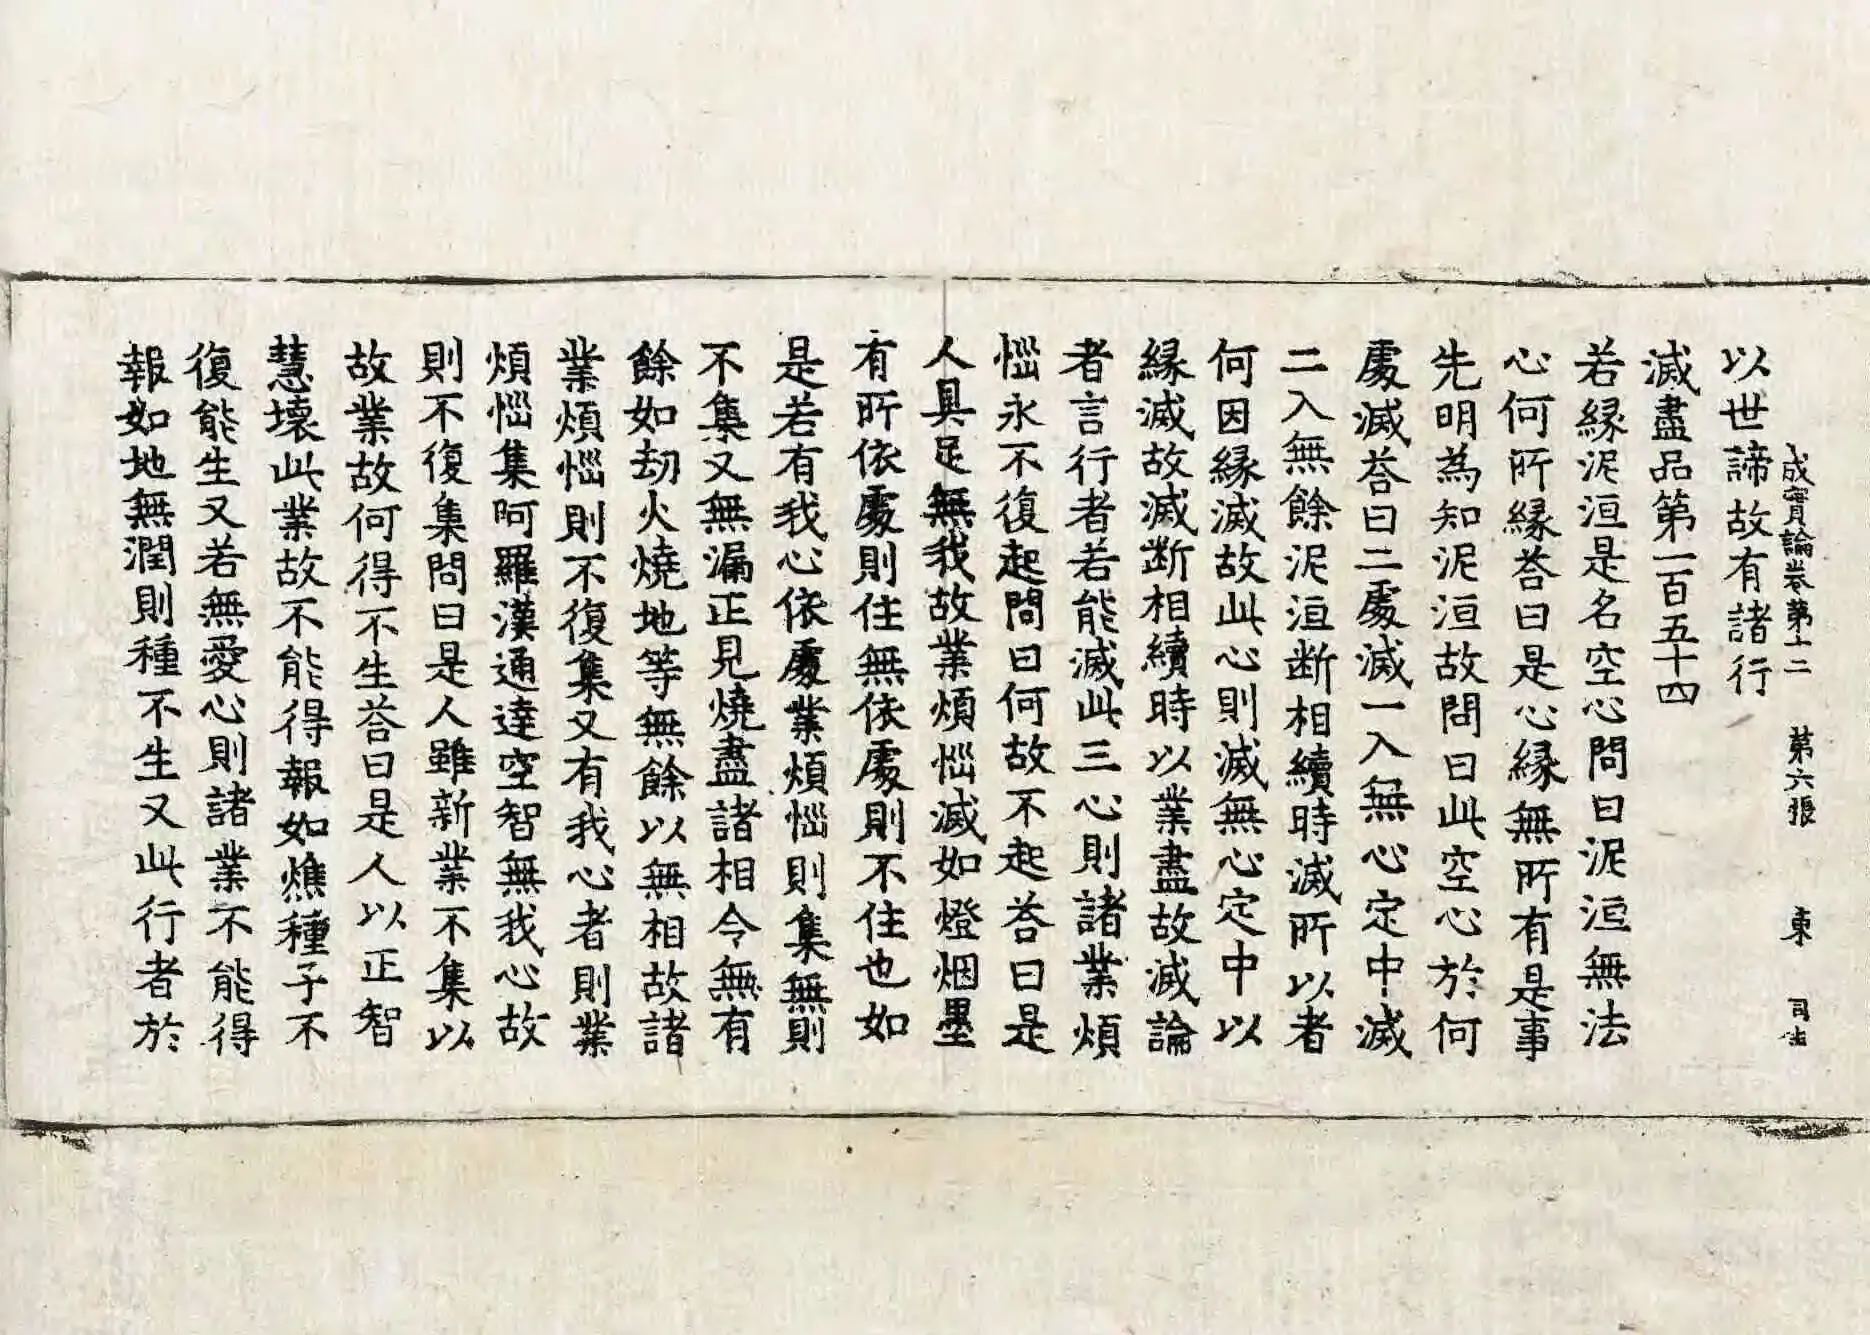 成實論卷第十二 第六張 東
以世諦故有諸行
滅盡品第一百五十四
若緣泥洹是名空心問曰泥洹無法
心何所緣荅曰是心緣無所有是事
先明為知泥洹故問曰此空心於何
處滅荅曰二處滅一入無心定中滅
二入無餘泥洹断相續時滅所以者
何因緣滅故此心則滅無心定中以
緣滅故滅断相續時以業盡故滅論
者言行者若能滅此三心則諸業煩
惱永不復起問曰何故不起荅曰是
人具足無我故業煩惱滅如燈烟墨
有所依處則住無依處則不住也如
是若有我心依處業煩惱則集無則
不集又無漏正見燒盡諸相令無有
餘如劫火燒地等無餘以無相故諸
業煩惱則不復集又有我心者則業
煩惱集阿羅漢通達空智無我心故
則不復集問曰是人雖新業不集以
故業故何得不生荅曰是人以正智
慧壞此業故不能得報如燋種子不
復能生又若無愛心則諸業不能得
報如地無潤則種不生又此行者於